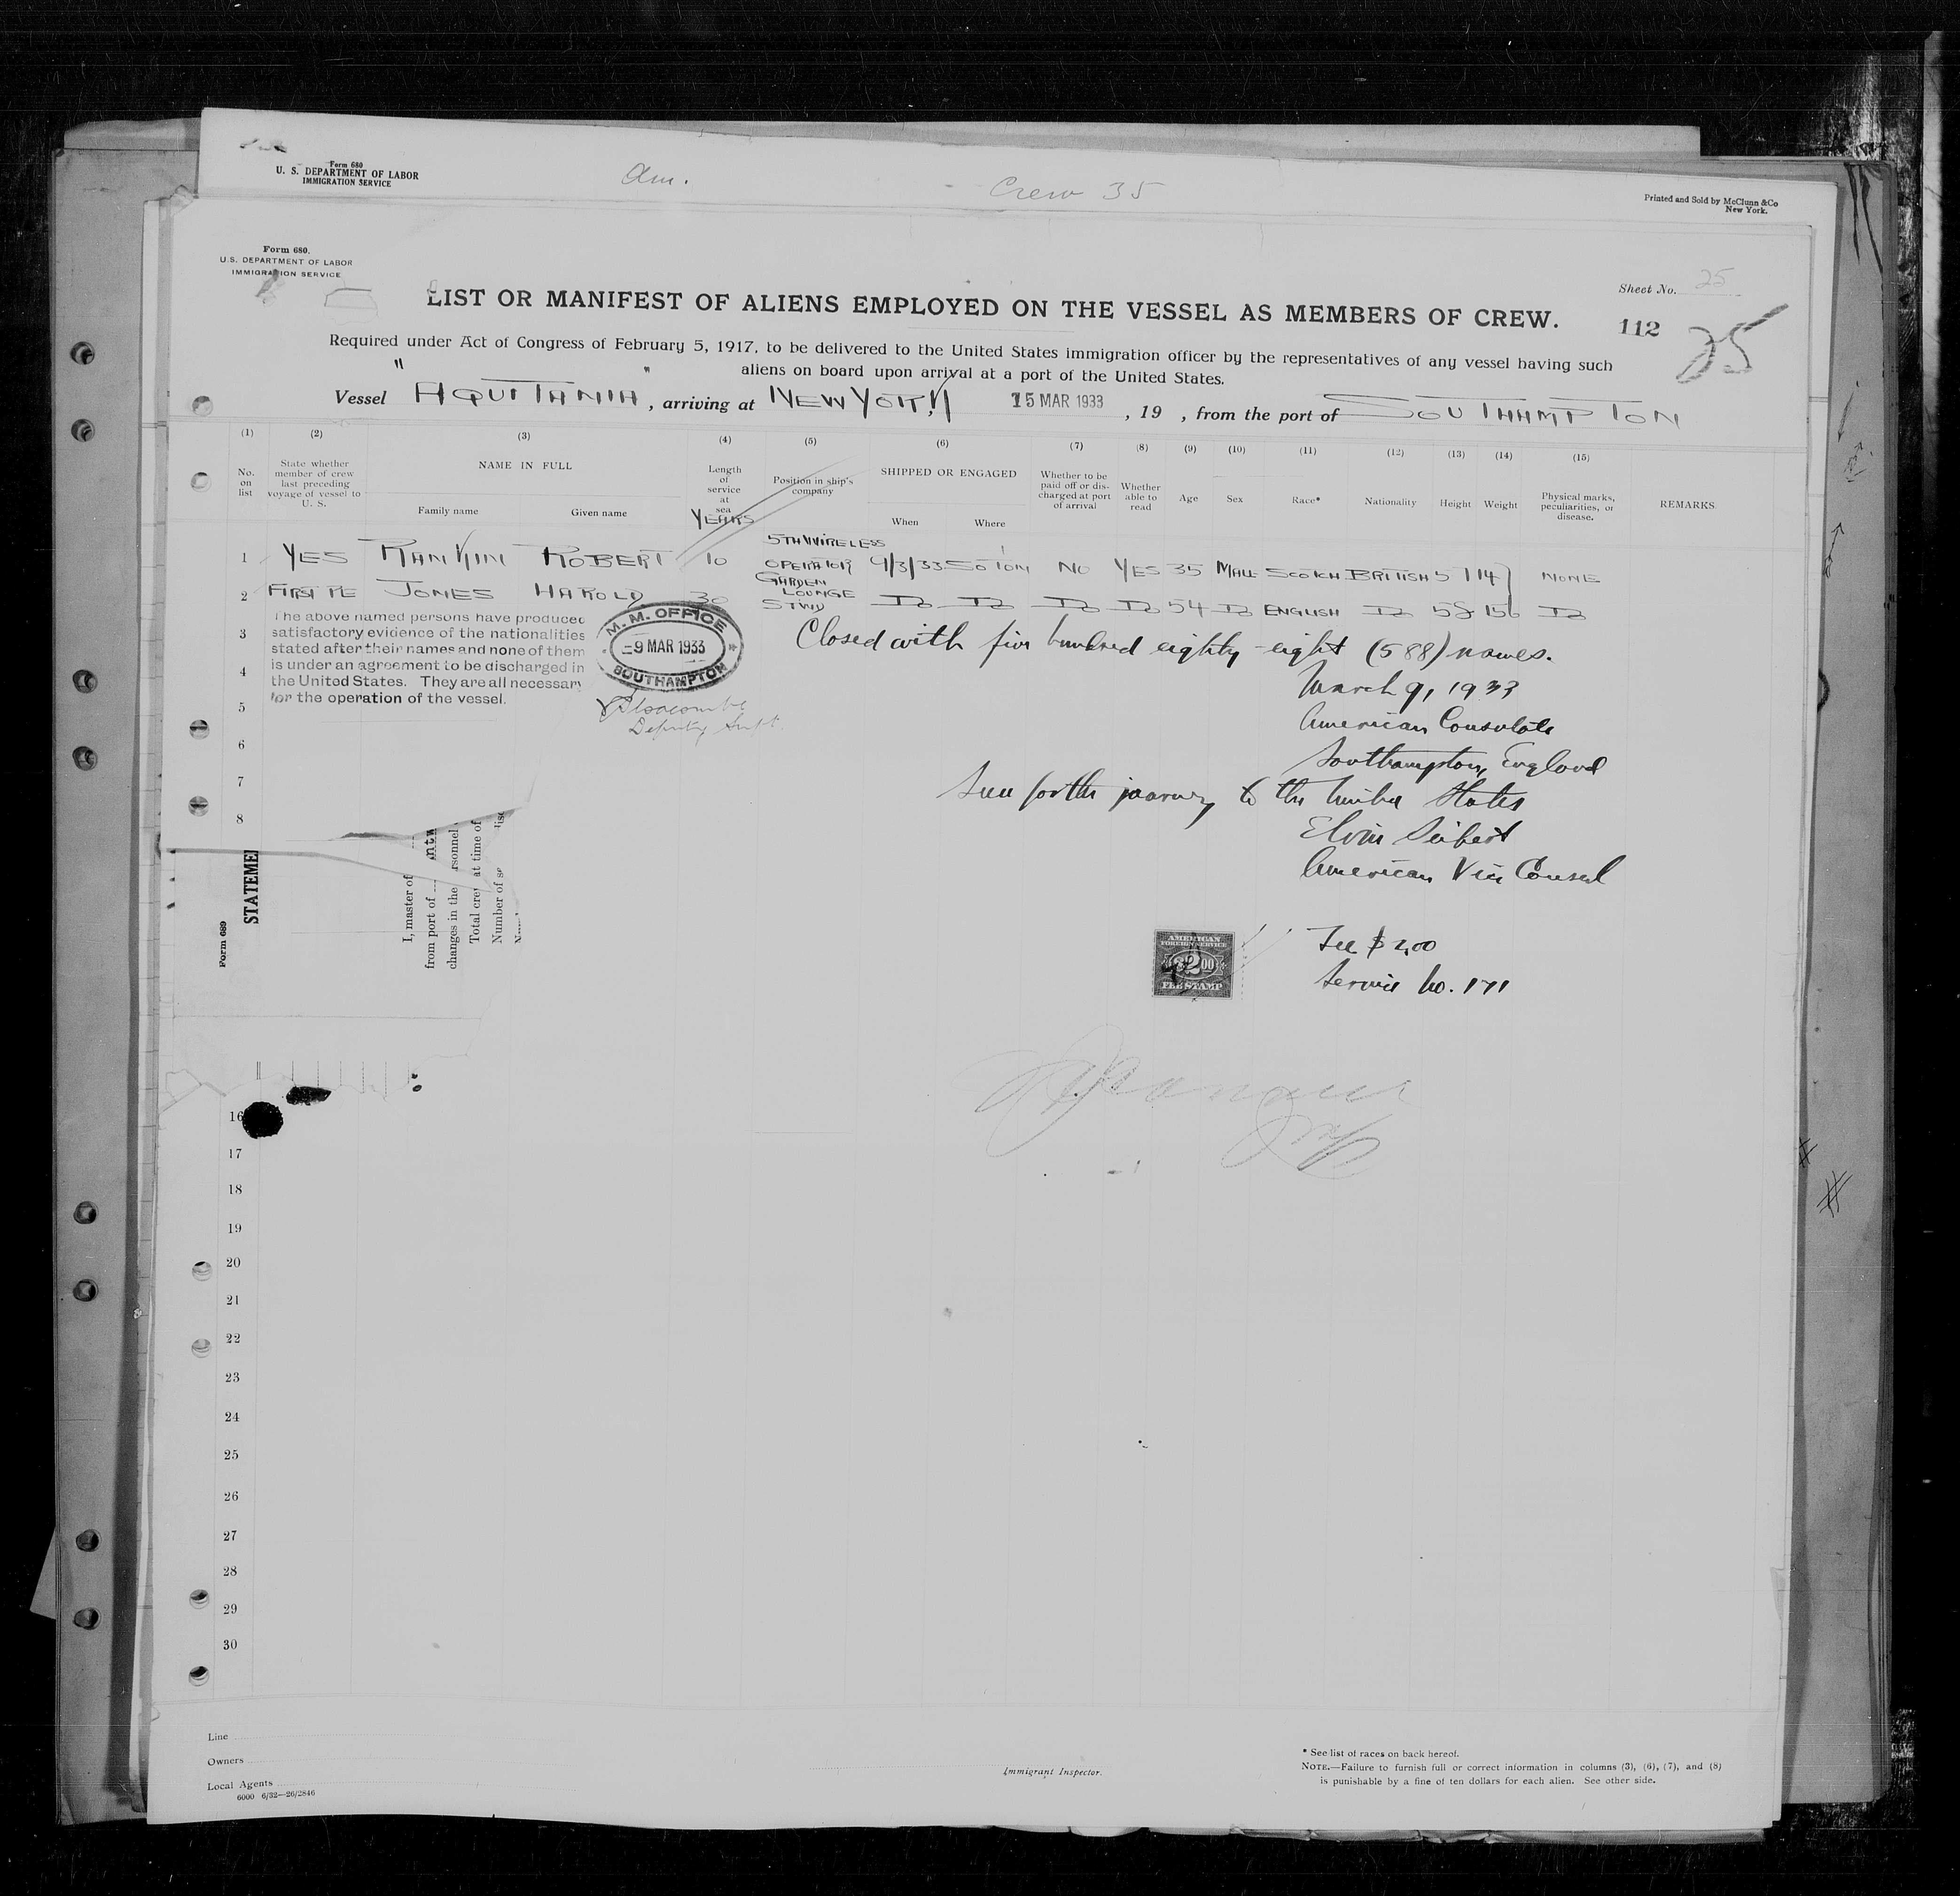 Form 680
U. S. DEPARTMENT OF LABOR
IMMIGRATION SERVICE
am.
Crew 35
Printed and Sold by McClunn &Co
New York.
Form 680.
U.S. DEPARTMENT OF LABOR
IMMIGRATION SERVICE
Sheet No. 25
LIST OR MANIFEST OF ALIENS EMPLOYED ON THE VESSEL AS MEMBERS OF CREW.
112 25
Required under Act of Congress of February 5, 1917, to be delivered to the United States immigration officer by the representatives of any vessel having such
aliens on board upon arrival at a port of the United States.
Vessel "AQUITANIA", arriving at NEW YORK, 15 MAR 1933, 19 , from the port of SOUTHAMPTON
(1) (2) (3) (4) (5) (6) (7) (8) (9) (10) (11) (12) (13) (14) (15)
No. on list
State whether member of crew last preceding voyage of vessel to U. S.
NAME IN FULL
Family name
Given name
Length of service at sea
YEARS
Position in ship's company
SHIPPED OR ENGAGED
When
Where
Whether to be paid off or discharged at port of arrival
Whether able to read
Age
Sex
Race*
Nationality
Height
Weight
Physical marks, peculiarities, or disease.
REMARKS
1 YES RANKIN ROBERT 10 5TH WIRELESS OPERATOR 9/3/33 SO'TON NO YES 35 MALE SCOTCH BRITISH 5 7 147 NONE
2 FIRST TE JONES HAROLD 30 GARDEN LOUNGE STWD Do Do Do Do 54 Do ENGLISH Do 5 8 156 Do
The above named persons have produced
satisfactory evidence of the nationalities
stated after their names and none of them
is under an agreement to be discharged in
the United States. They are all necessary
for the operation of the vessel.
M. M. OFFICE
-9 MAR 1933
SOUTHAMPTON
Deputy Supt.
Closed with five hundred eighty-eight (588) names.
March 9, 1933
American Consulate
Southampton, England
Seen for the journey to the United States
Elvin Seibert
American Vice Consul
3
4
5
6
7
8
Form 689
STATEME
I, master of
from port of
changes in the rsonnel
Total cre at time of
Number of se
AMERICAN
FOREIGN SERVICE
$2.00
FEE STAMP
Fee $2.00
Service No. 171
16
17
18
19
20
21
22
23
24
25
26
27
28
29
30
Line
Owners
Local Agents
6000 6/32—26/2846
Immigrant Inspector.
* See list of races on back hereof.
NOTE.—Failure to furnish full or correct information in columns (3), (6), (7), and (8)
is punishable by a fine of ten dollars for each alien. See other side.